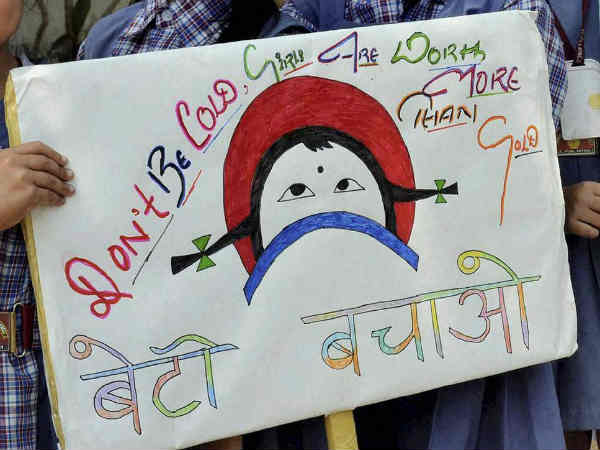 DON'T BE COLD, GIRLS ARE WORTH MORE THAN GOLD
बेटी बचाओ